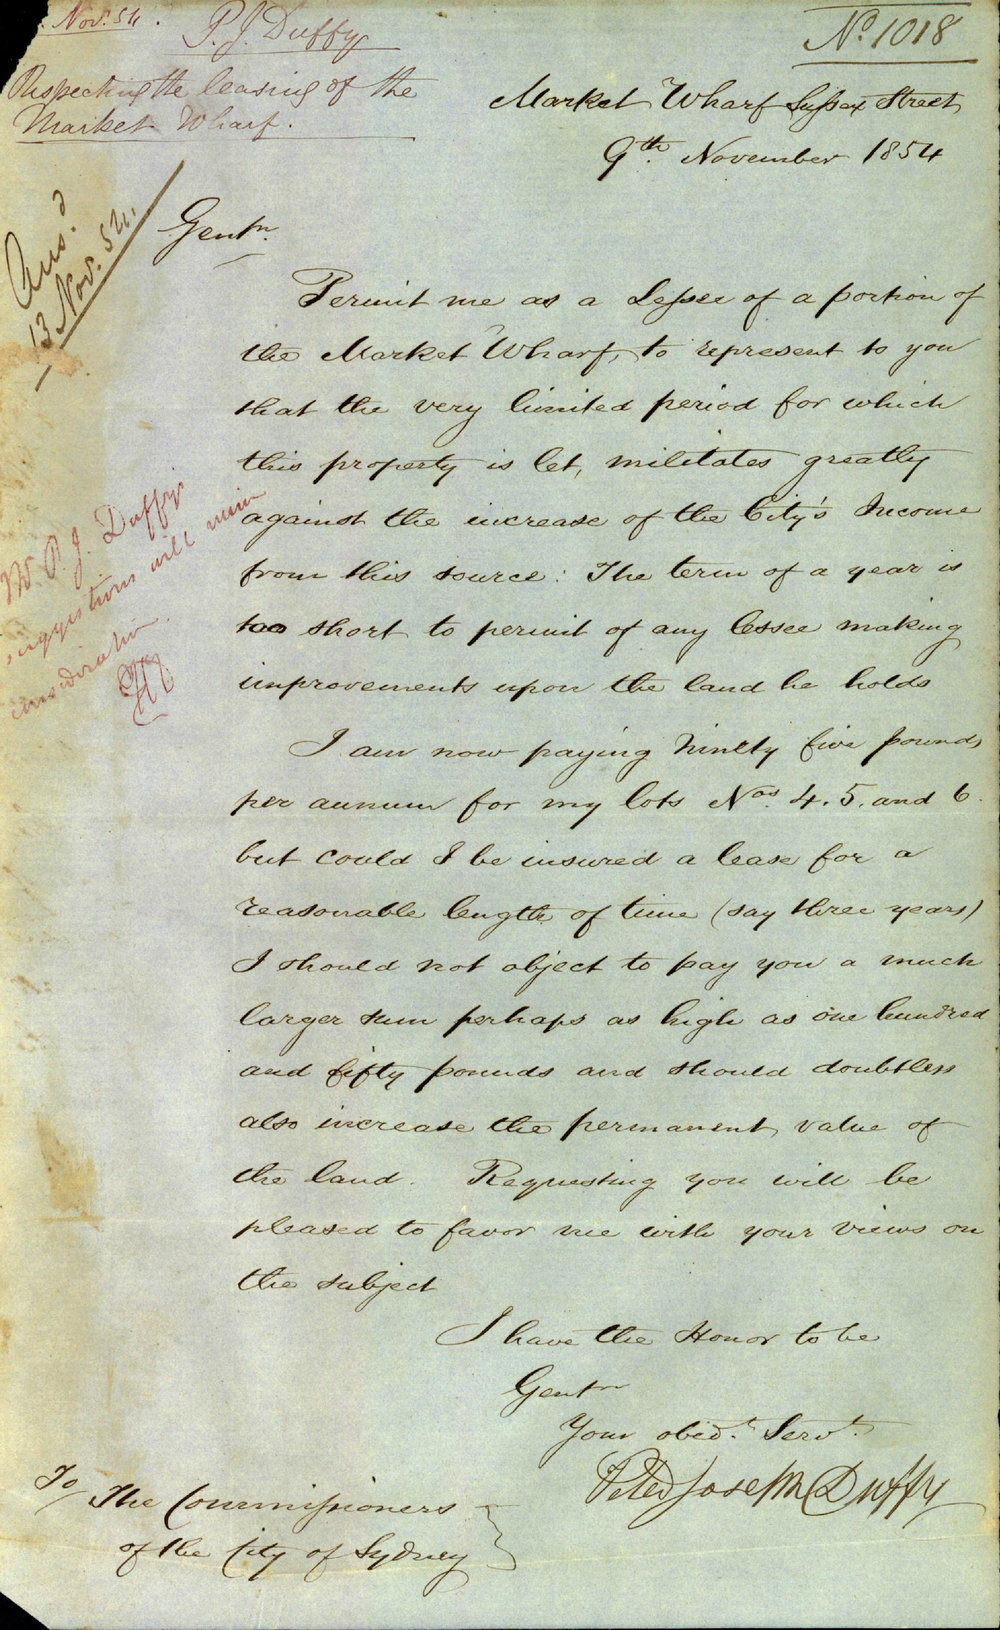 Nov. 54.
P. J. Duffy
Respecting the leasing of the
Market Wharf.
No. 1018
Market Wharf Sussex Street
9th. November 1854
Ansd.
13 Nov. 54.
Gentn.
Permit me as a Lessee of a portion of
the Market Wharf, to represent to you
that the very limited period for which
this property is let, militates greatly
against the increase of the City's Income
from this source: The term of a year is
too short to permit of any lessee making
improvements upon the land he holds
Mr. P. J. Duffy's
suggestions will
consideration.
I am now paying Ninety five pounds
per annum for my lots Nos. 4. 5. and 6.
but could I be insured a lease for a
reasonable length of time (say three years)
I should not object to pay you a much
larger sum perhaps as high as one hundred
and fifty pounds and should doubtless
also increase the permanent value of
the land. Requesting you will be
pleased to favor me with your views on
the subject
I have the Honor to be
Gentn
Your obedt. Servt.
Peter Joseph Duffy
To
The Commissioners
of the City of Sydney